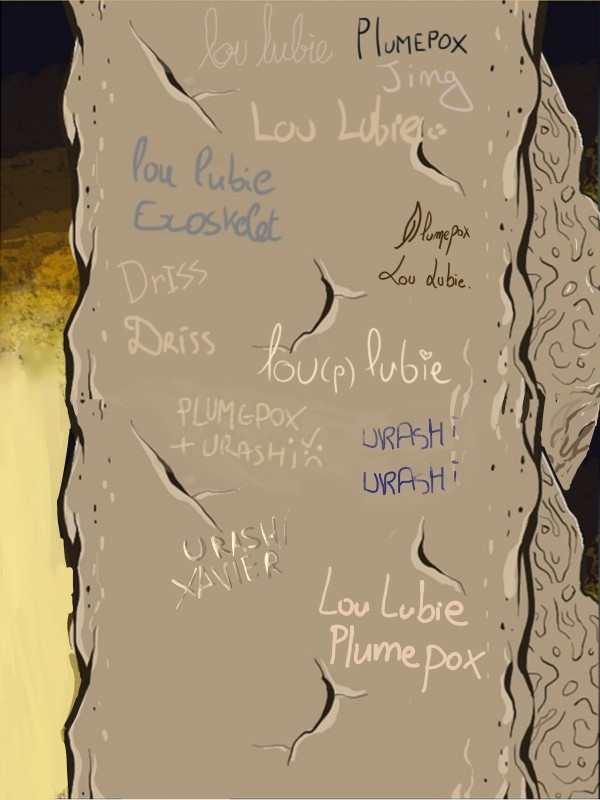 lou lubie
PLUMEPOX
Jing
Lou Lubie
lou lubie
Exoskelet
Plumepox
Lou Lubie.
DrISS
Driss
lou(p) lubie
PLUMEPOX
+ URASHi
URASHi
URASHi
URASHi
XAVIER
Lou Lubie
Plumepox